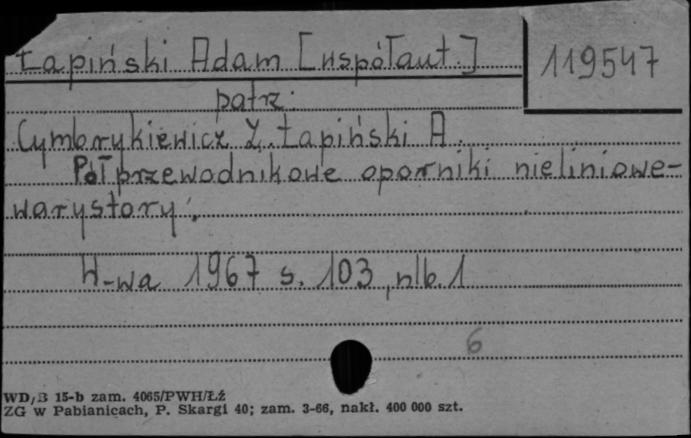 Łapiński Adam [współaut.] 119547
patrz:
Cymbrykiewicz Z. Łapiński A.
Półprzewodnikowe oporniki nieliniowe-
warystory.
W-wa 1967 s. 103, nlb. 1
6
WD/B 15-b zam. 4065/PWH/ŁŹ
ZG w Pabianicach, P. Skargi 40; zam. 3-66, nakł. 400 000 szt.